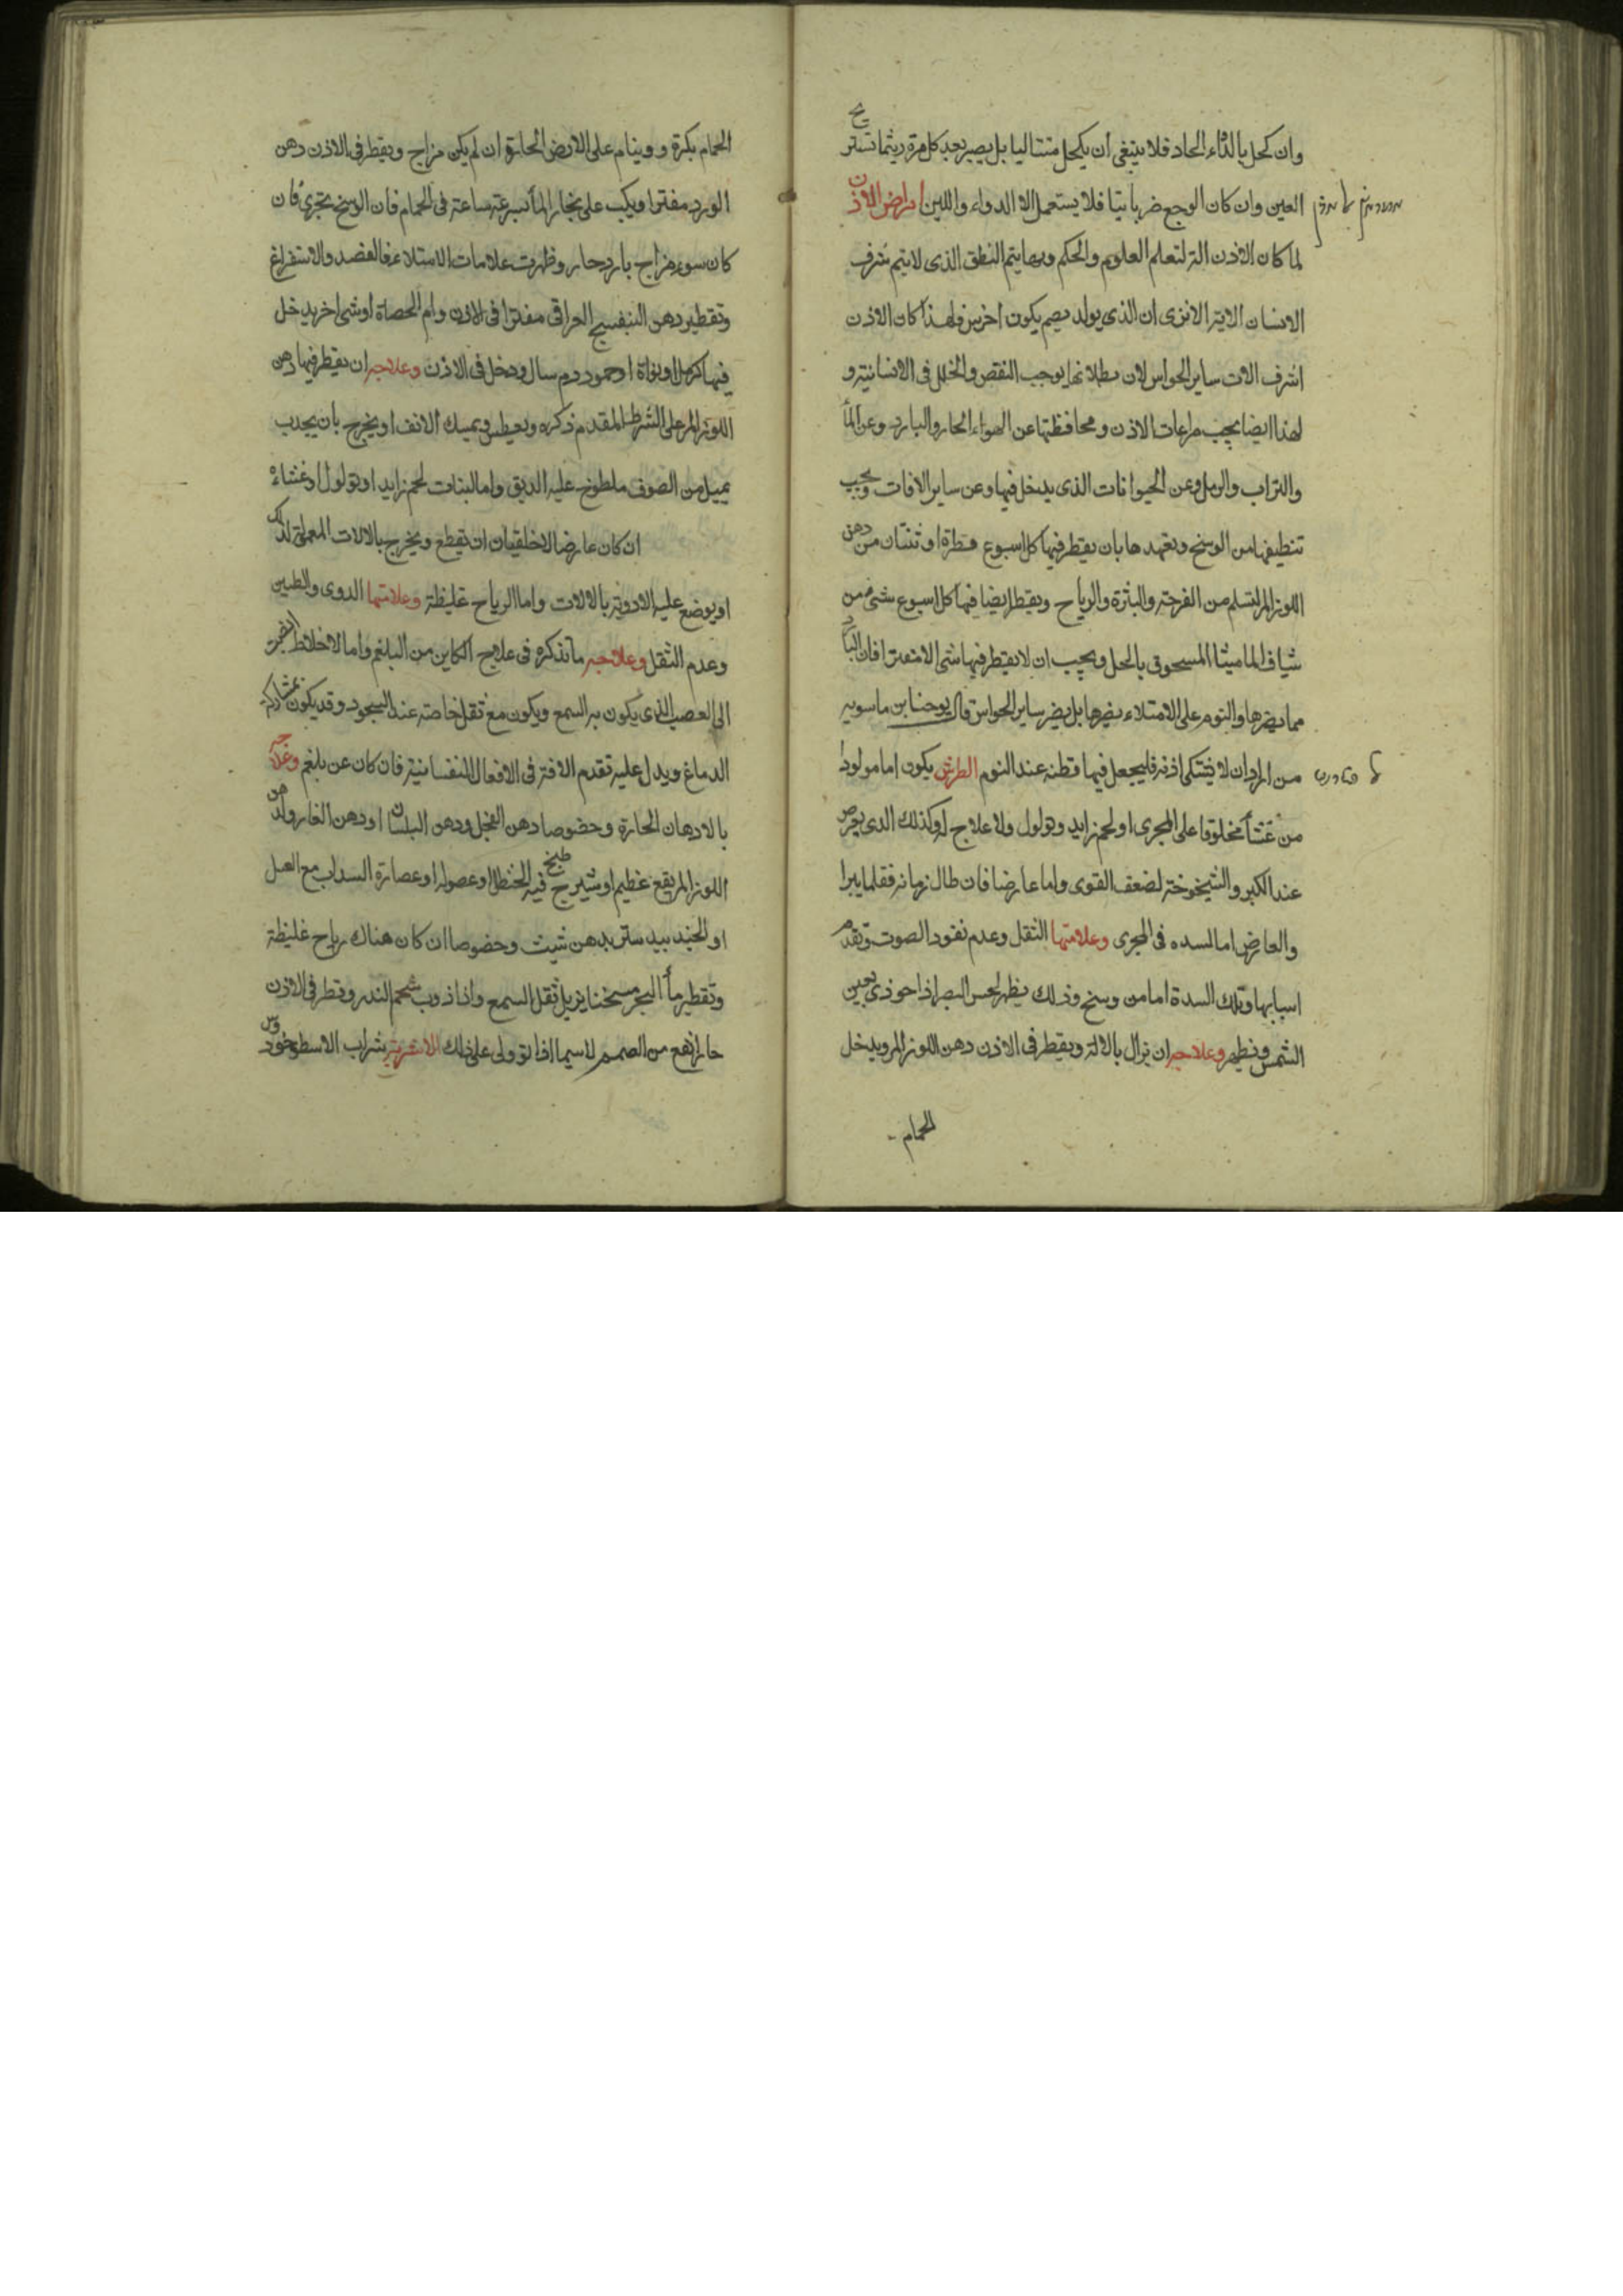 وان كحل بالدّاء الحاد فلا ينبغى ان يكحل متتاليا بل يصبر بعد كل مرة ريثما تستريح
العين وان كان الوجع ضربانيا فلا يستعمل الا الدواء واللبن امراض الاذن
لما كان الاذن الة لتعلم العلوم والحكم وبها يتم النطق الذى لا يتم شرف
الانسان الا به الا ترى ان الذى يولد يصم يكون اخرس فلهذا كان الاذن
اشرف الات ساير الحواس لان بطلانها يوجب النقص والخلل فى الانسانية و
لهذا ايضا يجب مراعات الاذن ومحافظتها عن الهواء الحار والبارد وعن الماء
والتراب والرمل وعن الحيوانات الذى يدخل فيها وعن ساير الافات ويجب
تنظيفها من الوسخ وتعهدها بان يقطر فيها كل اسبوع قطرة او ثنتان من دهن
اللوز المر لتسلم من القرحة والبثرة والرياح ويقطر ايضا فيها كل اسبوع شئ من
شياف الماميثا المسحوق بالخل ويجب ان لا يقطر فيها شئ الا مفترا فان البارد
مما يضرها والنوم على الامتلاء يضرها بل يضر ساير الحواس قال يوحنا بن ماسويه
من اراد ان لا يشتكى اذنه فليجعل فيها قطنه عند النوم الطرش يكون اما مولودا
من غشاء مخلوقا على المجرى او لحم زايد وثولول ولا علاج له وكذلك الذى يعرض
عند الكبر والشيخوخة لضعف القوى واما عارضا فان طال زمانه فقلما يبرا
والعارض اما لسده فى المجرى وعلامتها الثقل وعدم نفود الصوت وتقدم
اسبابها وتلك السدة اما من وسخ وذلك يظهر لحس البصر اذا حوذى بعين
الشمس ونظهر وعلاجه ان تزال بالالة ويقطر فى الاذن دهن اللوز المر ويدخل
الحمام
الحمام بكرة و وينام على الارض الحارة ان لم يكن مزاج ويقطر فى الاذن دهن
الورد مفترا ويكب على بخار الماء بسرعة ساعة فى الحمام فان الوسخ يجرى فان
كان سوء مزاج بارد حار وظهرت علامات الامتلاء فالفصد والاستفراغ
وتقطير دهن البنفسج العراقى مفترا فى الاذن واما لحصاة او شئ اخر يدخل
فيها كرمل او نواة او جمود دم سال ودخل فى الاذن وعلاجه ان يقطر فيها دهن
اللوز المر على الشرط المقدم ذكره ويعطس ويمسك الانف او يخرج بان يجدب
بميل من الصوف ملطوخ عليه الدبق واما لبنات لحم زايد او ثولول او غشاء
ان كان عارضا لا خلقيا ان تقطع ويخرج بالالات المعملة لذلك
او يوضع عليه الادوية بالالات واما لرياح غليظة وعلامتها الدوى والطنين
وعدم الثقل وعلاجه ما نذكره فى علاج الكاين من البلغم واما لاخلاط
الى العصب الذى يكون به السمع ويكون مع ثقل خاصة عند السجود وقد يكون بمشاركة
الدماغ ويدل عليه تقدم الافة فى الافعال النفسانية فان كان عن بلغم وعلاجه
بالادهان الحارة وخصوصا دهن الفجل ودهن البلسان او دهن الغار ولدهن
اللوز المر نفع عظيم او شيرج طبخ فيه الحنظل او عصوله او عصارة السداب مع العسل
او الجند بيدستر بدهن شبث وخصوصا ان كان هناك رياح غليظة
وتقطير ماء البحر مسخنا يزيل ثقل السمع واذا ذوب شحم النسر وقطر فى الاذن
حارا نفع من الصمم لا سيما اذا توولى على ذلك الاشربة شراب الاسطوخودوس